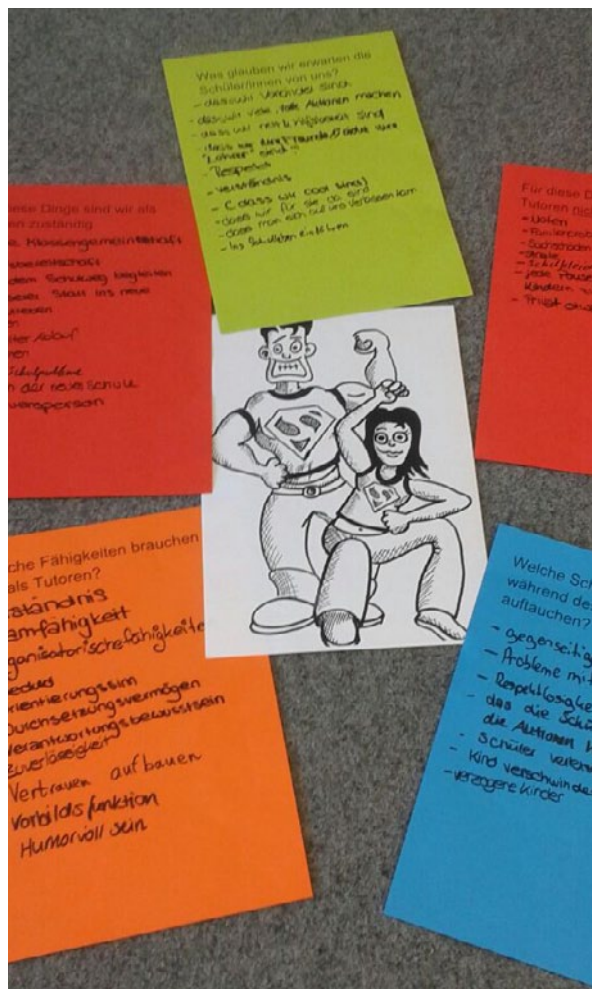 Was glauben wir erwarten die
Schüler/innen von uns?
- dass wir Vorbilder sind
- dass wir viele, tolle Aktionen machen
- dass wir nett & hilfsbereit sind
- dass wir ihre Freunde & nicht ihre
"Lehrer" sind!!
- Respekt
- Verständnis
- (dass wir cool sind)
- dass wir für sie da sind
- dass man sich auf uns verlassen kann
- Ins Schulleben einführen
diese Dinge sind wir als
en zuständig
Klassengemeinschaft
sbereitschaft
dem Schulweg begleiten
Start ins neue
ter Ablauf
Schulprobleme
n der neuen Schule
uensperson
Für diese D
Tutoren nic
- Noten
- Familienprob
- Sachschäden
- jede Pause
Kindern v
- Privat
che Fähigkeiten brauchen
als Tutoren?
ständnis
amfähigkeit
ganisatorische Fähigkeite
eduld
rientierungssinn
Durchsetzungsvermögen
verantwortungsbewusstsein
Zuverlässigkeit
Vertrauen aufbauen
Vorbildsfunktion
Humorvoll sein
Welche Sch
während des
auftauchen?
- gegenseitig
- Probleme mit
- Respektlosigke
- das die Schü
die Aktionen
- Schüler verletz
- Kind verschwinde
- verzogene Kinder